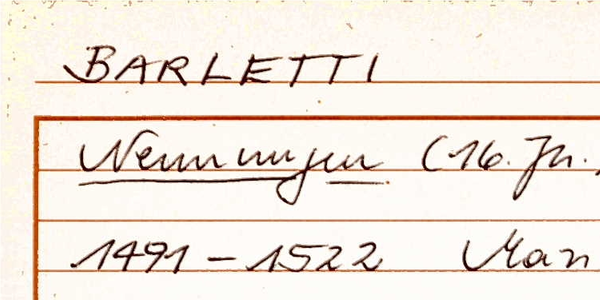 BARLETTI
Nennungen (16. Jh.
1491 – 1522